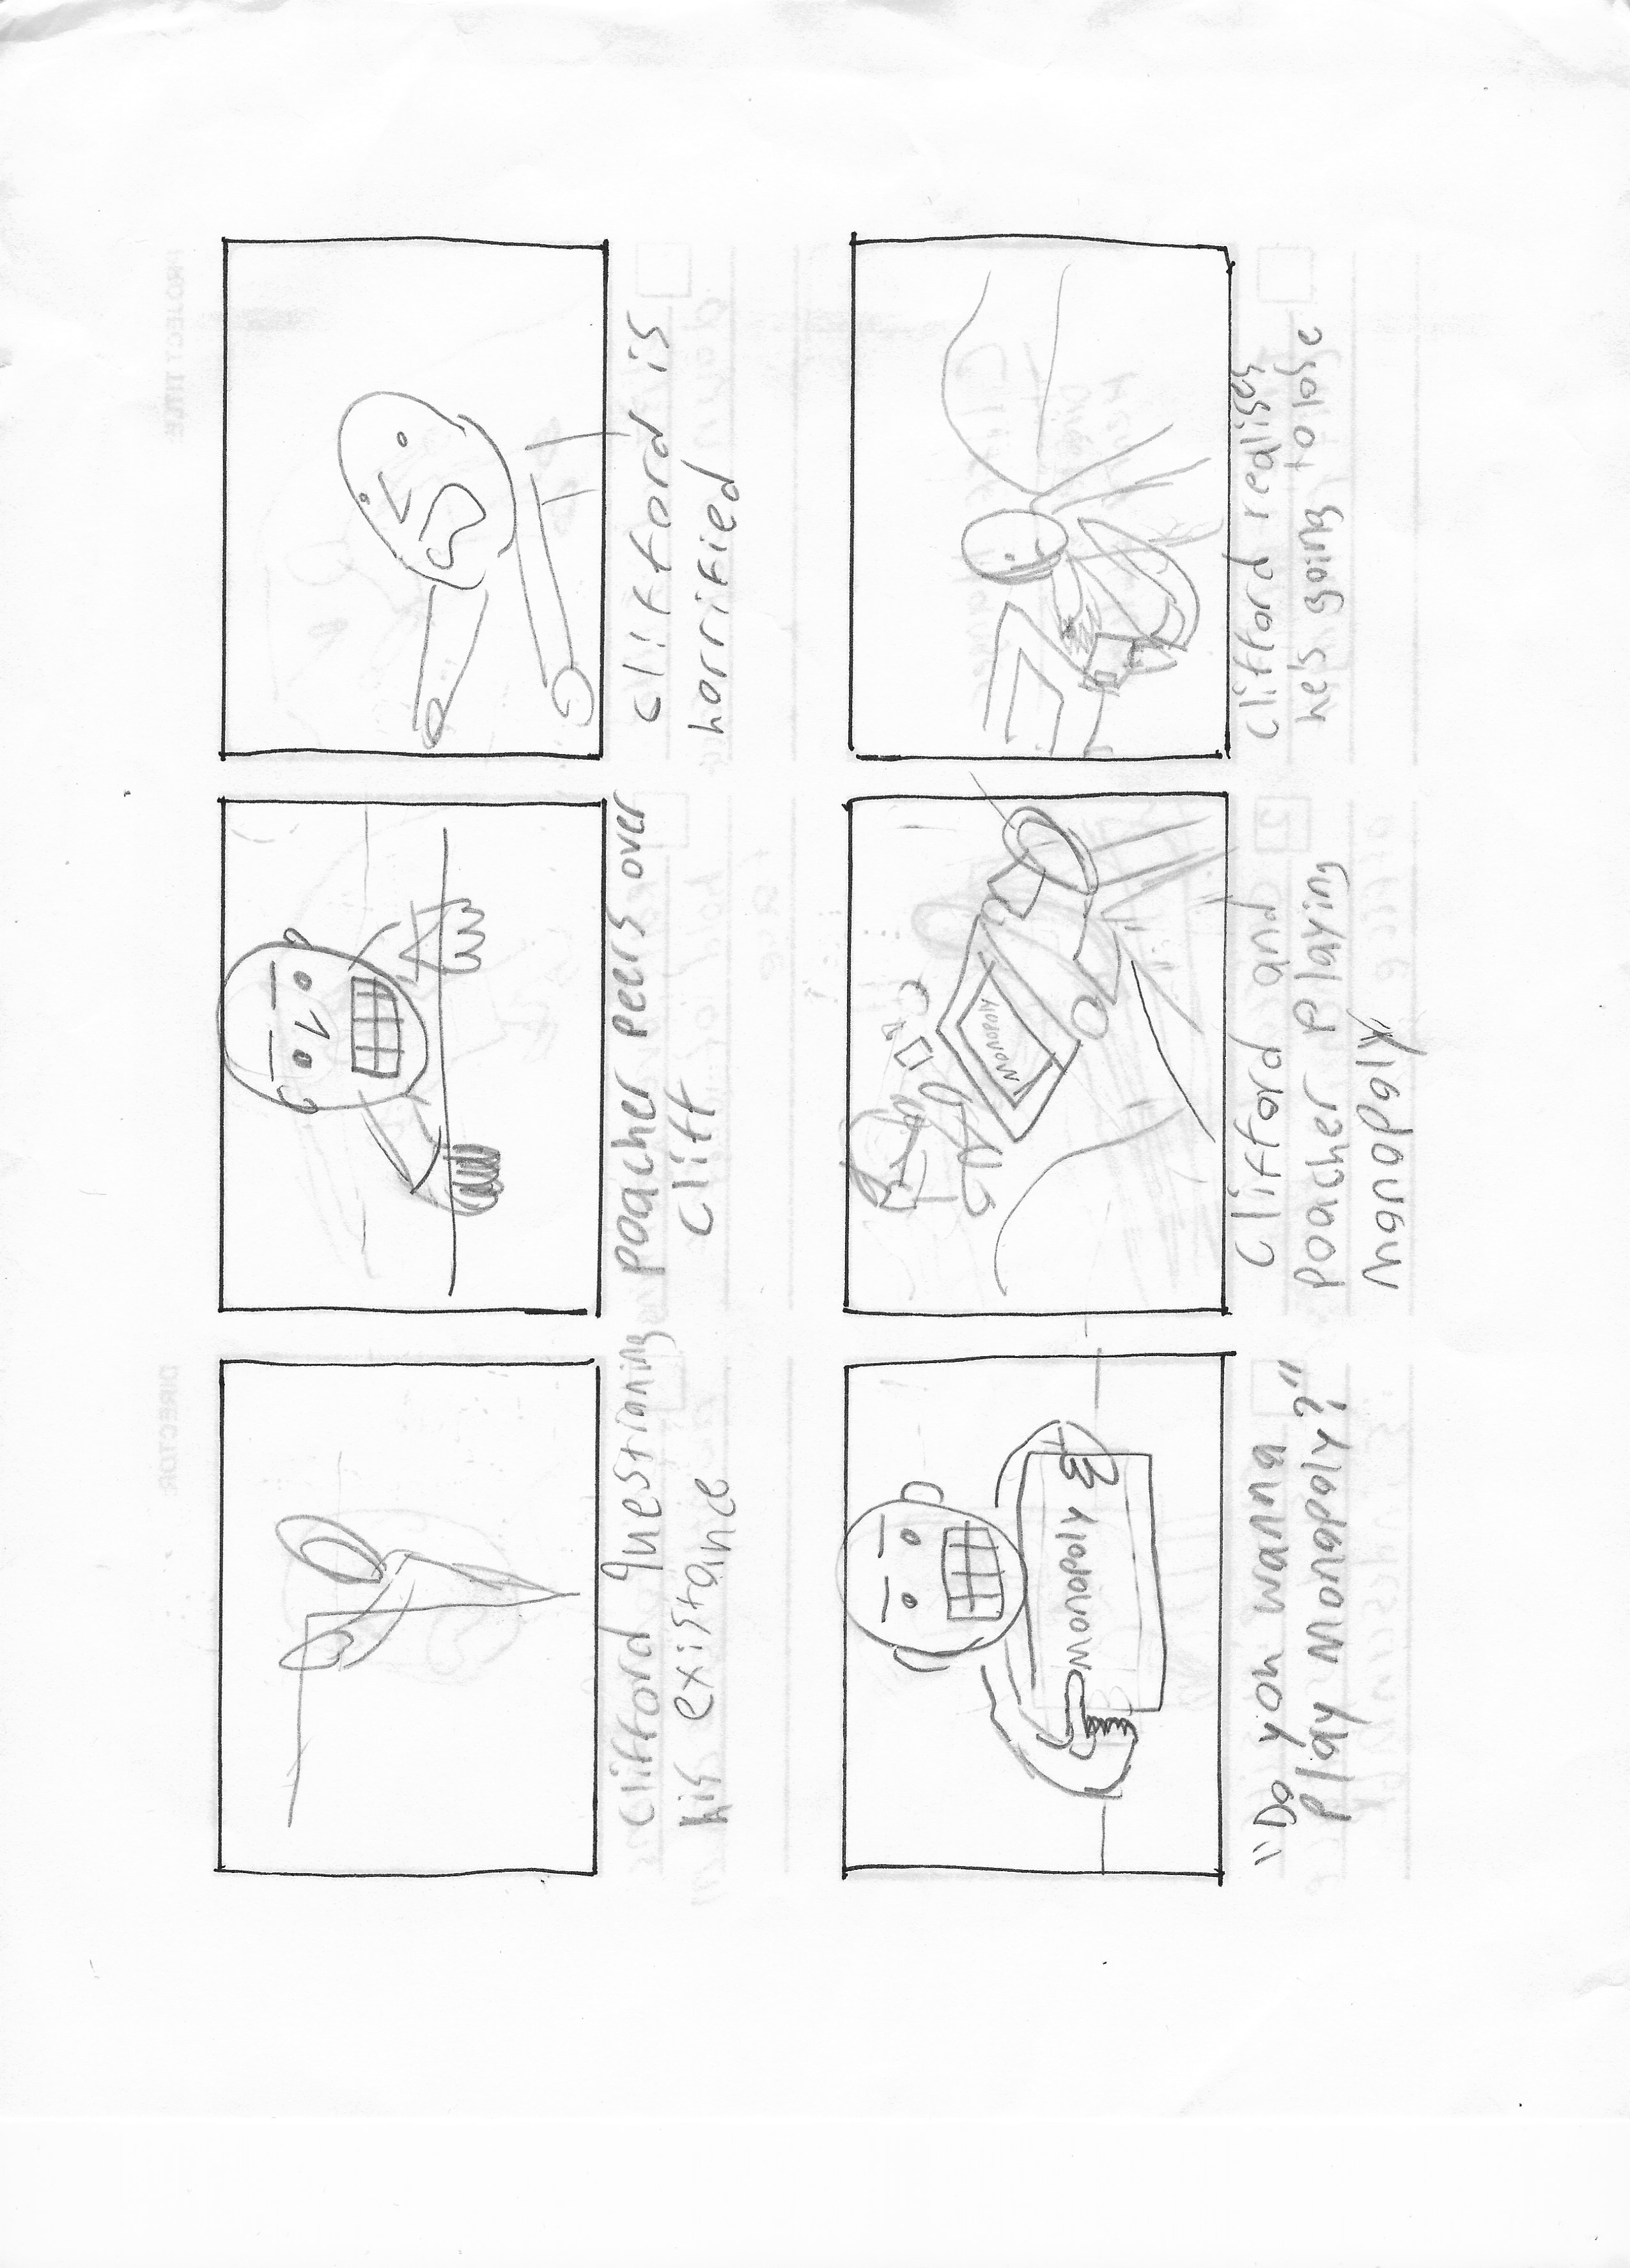 Clifford questioning
his existance
poacher peers over
cliff
Clifford is
horrified
Monopoly
"Do you wanna
Play Monopoly?"
Monopoly
Clifford and
poacher playing
monopoly
Clifford realises
he's going to lose
PROJECT TITLE
DIRECTOR